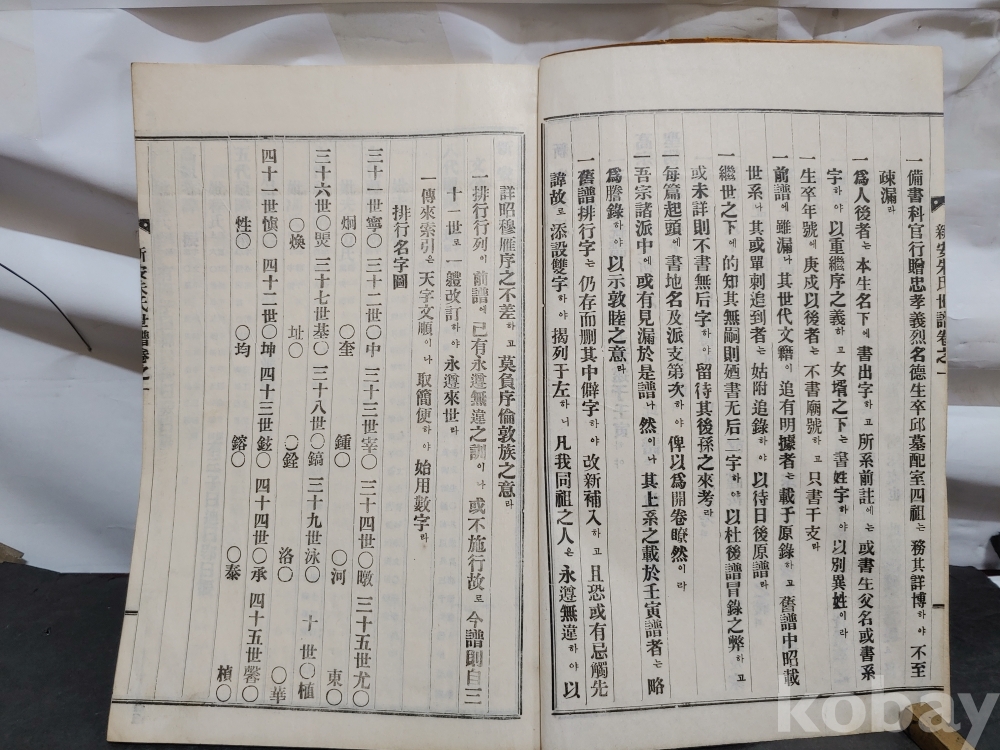 新安朱氏世譜卷之一
一備書科官行贈忠孝義烈名德生卒邱墓配室四祖는 務其詳博하야 不至
疎漏라
一爲人後者는 本生名下에 書出字하고 所系前註에는 或書生父名或書系
字하야 以重繼序之義하고 女壻之下는 書姓字하야 以別異姓이라
一生卒年號에 庚戌以後者는 不書廟號하고 只書干支라
一前譜에 雖漏나 其世代文籍이 追有明據者는 載于原錄하고 舊譜中昭載
世系나 其或單刺追到者는 姑附追錄하야 以待日後原譜라
一繼世之下에 的知其無嗣則廼書无后二字하야 以杜後譜冒錄之弊하고
或未詳則不書無后字하야 留待其後孫之來考라
一每篇起頭에 書地名及派支第次하야 俾以爲開卷瞭然이라
一吾宗諸派中에 或有見漏於是譜나 然이나 其上系之載於壬寅譜者는 略
爲謄錄하야 以示敦睦之意라
一舊譜排行字는 仍存而删其中僻字하야 改新補入하고 且恐或有忌觸先
諱故로 添設雙字하야 揭列于左하니 凡我同祖之人은 永遵無違하야 以
詳昭穆雁序之不差하고 莫負序倫敦族之意라
一排行行列이 前譜에 已有永遵無違之訓이나 或不施行故로 今譜則自三
十一世로 一軆改訂하야 永遵來世라
一傳來索引은 天字文順이나 取簡便하야 始用數字라
排行名字圖
三十一世寧〇 三十二世〇中 三十三世宰〇 三十四世〇暾 三十五世尤〇
炯〇 〇奎 鍾〇 〇河 東〇
三十六世〇煚 三十七世基〇 三十八世〇鎬 三十九世泳〇 十世〇植
〇煥 址〇 〇銓 洛〇 〇華
四十一世愼〇 四十二世〇坤 四十三世鉉〇 四十四世〇承 四十五世馨〇
性〇 〇均 鎔〇 〇泰 楨〇
新安朱氏世譜卷之一
kobay